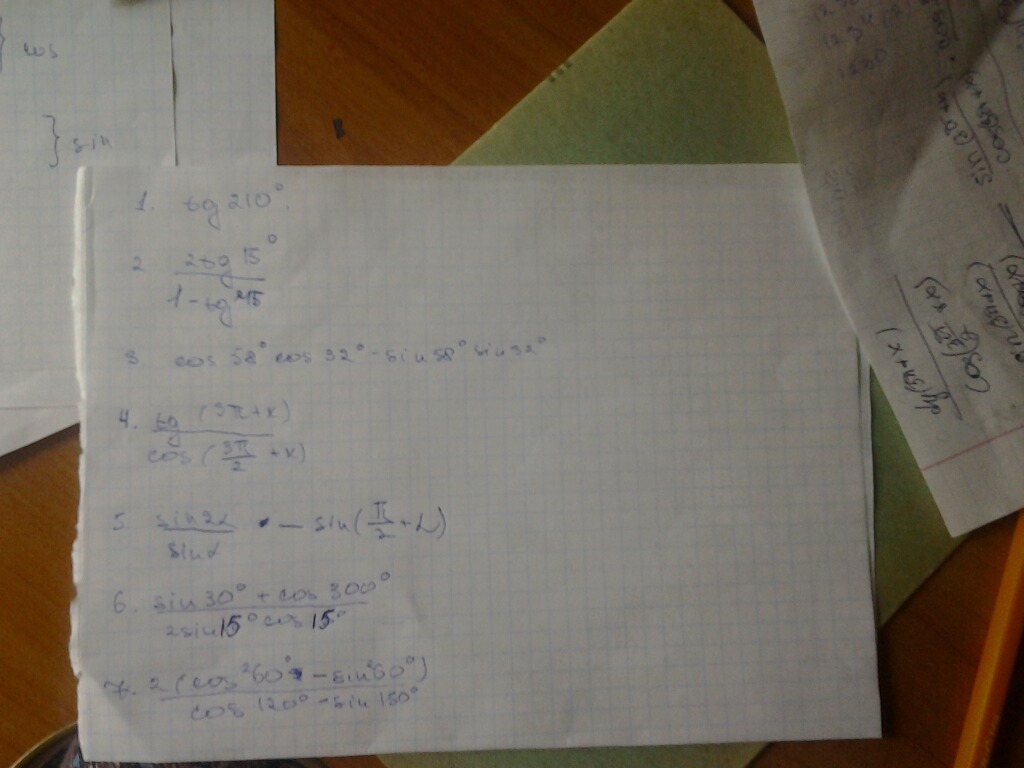 cos
} sin
1. tg 210°.
2. 2tg 15°
1 - tg²15
3. cos 58° cos 32° - sin 58° sin 32°
4. tg (3π + x)
cos (3π/2 + x)
5. sin2α / sinα - sin(π/2 + α)
6. sin 30° + cos 300°
2 sin 15° cos 15°
7. 2 (cos²60° - sin²60°)
cos 120° - sin 150°